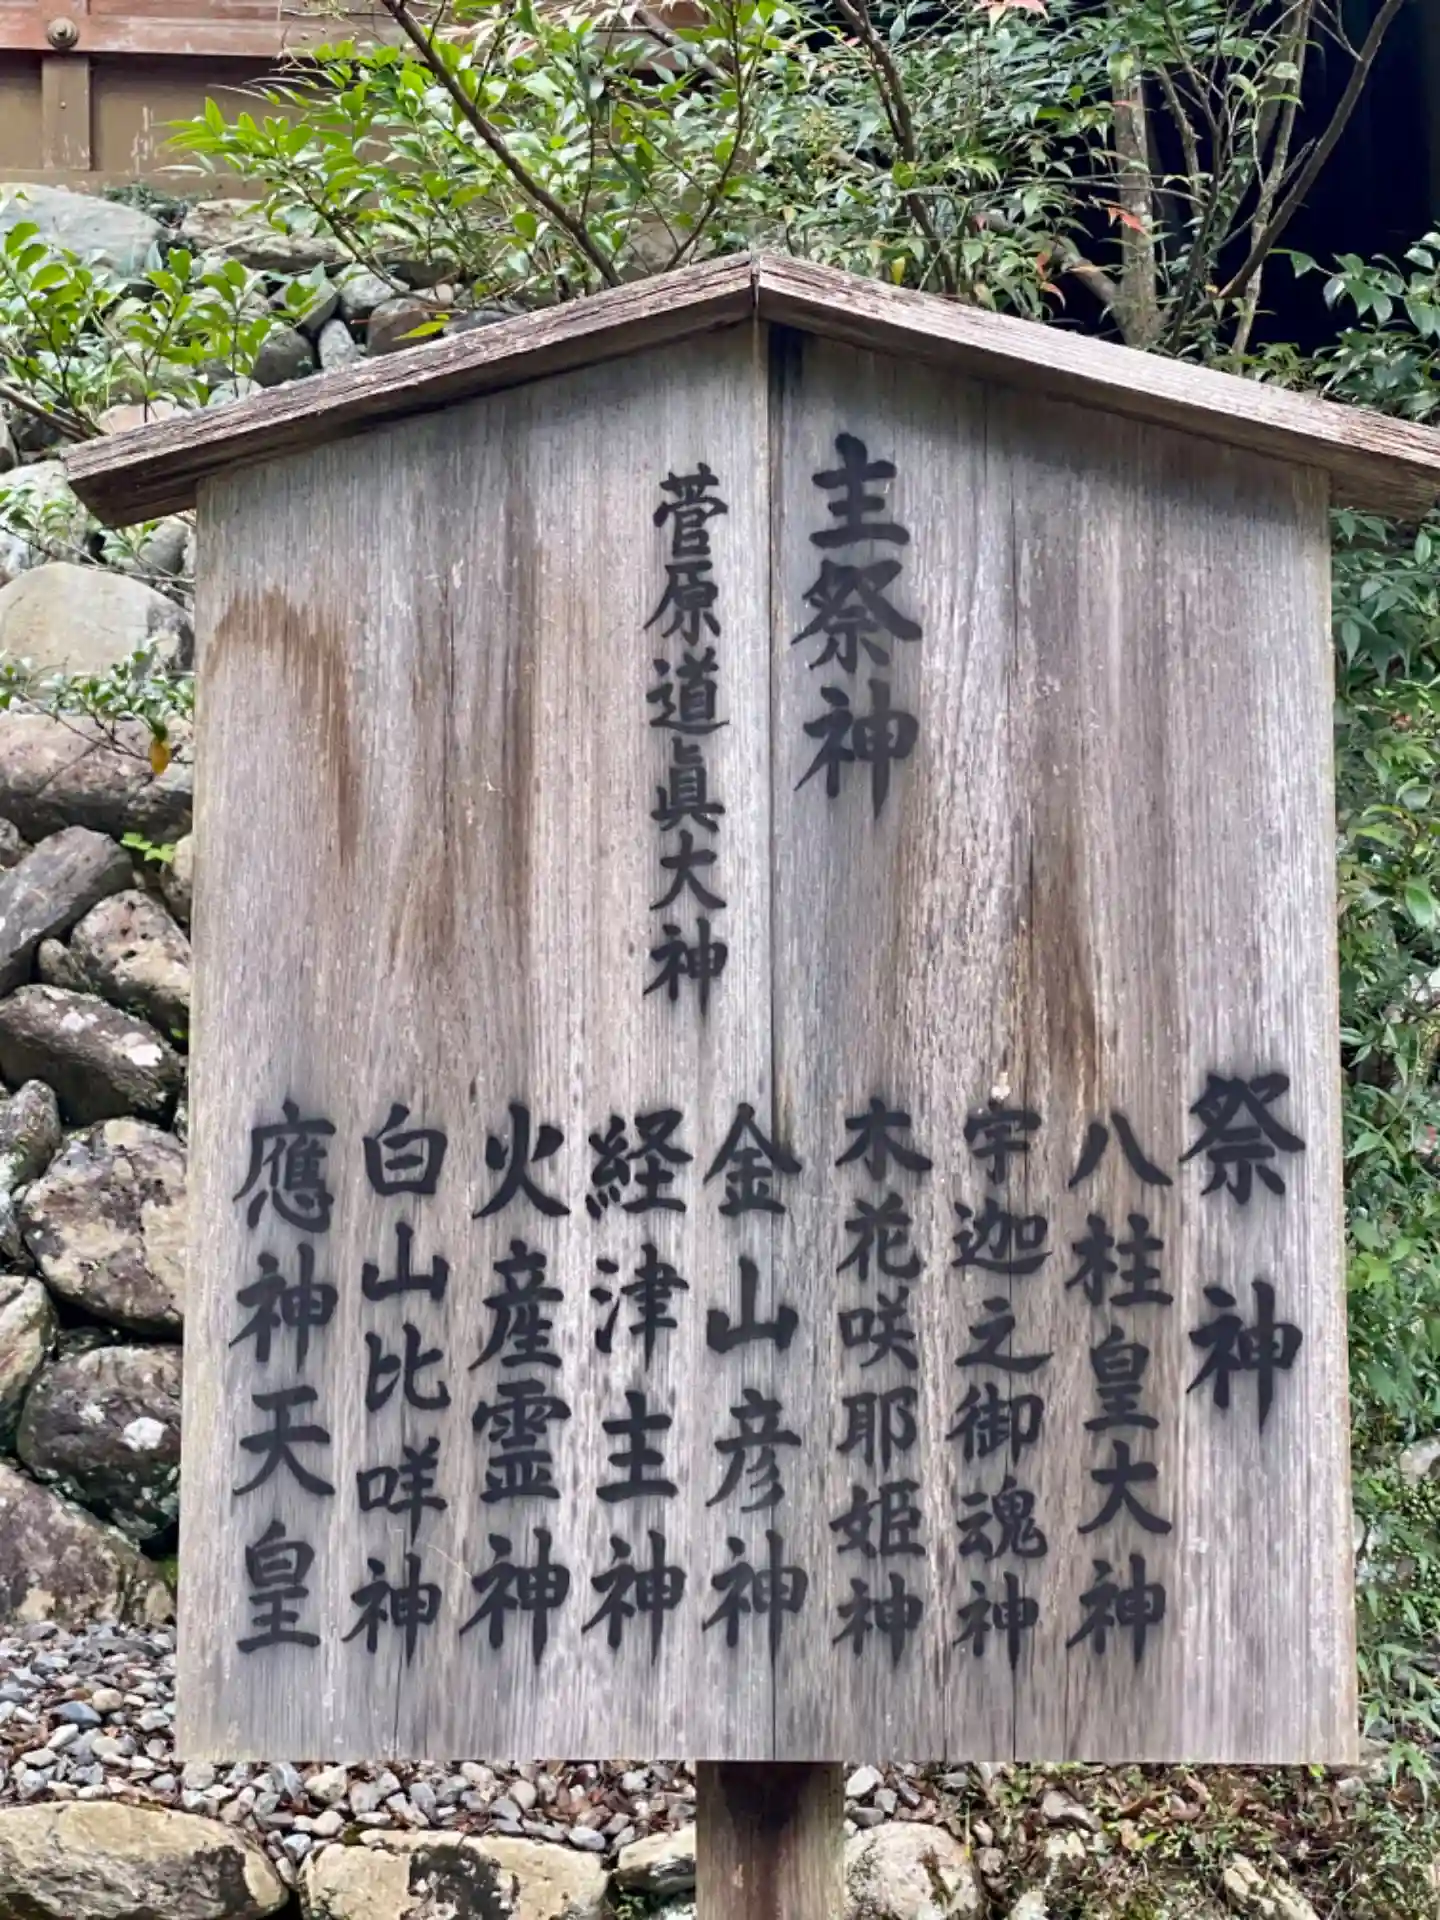 主祭神
菅原道眞大神
祭神
八柱皇大神
宇迦之御魂神
木花咲耶姫神
金山彦神
経津主神
火産霊神
白山比咩神
應神天皇